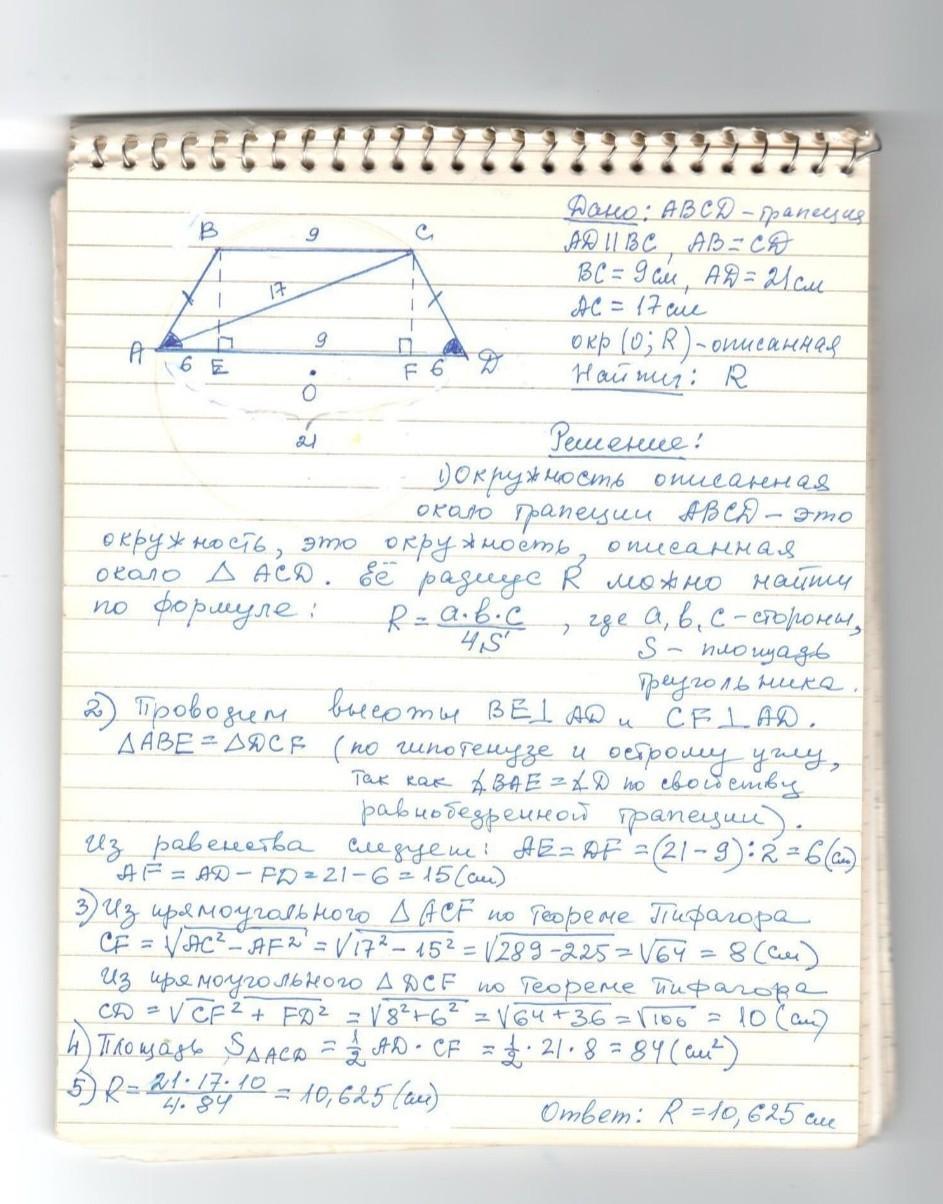 B 9 C
17
A 6 E 9 F 6 D
O
21
Дано: ABCD – трапеция
AD || BC, AB = CD
BC = 9 см, AD = 21 см
AC = 17 см
окр (O; R) – описанная
Найти: R
Решение:
1) Окружность описанная
около трапеции ABCD – это
окружность, это окружность, описанная
около △ ACD. Её радиус R можно найти
по формуле: R = a·b·c / 4S , где a, b, c – стороны,
S – площадь
треугольника.
2) Проводим высоты BE⊥AD и CF⊥AD.
△ABE = △DCF (по гипотенузе и острому углу,
так как ∡BAE = ∡D по свойству
равнобедренной трапеции).
Из равенства следует: AE = DF = (21 – 9) : 2 = 6 (см)
AF = AD – FD = 21 – 6 = 15 (см)
3) Из прямоугольного △ ACF по теореме Пифагора
CF = √AC² – AF² = √17² – 15² = √289 – 225 = √64 = 8 (см)
Из прямоугольного △ DCF по теореме Пифагора
CD = √CF² + FD² = √8² + 6² = √64 + 36 = √100 = 10 (см)
4) Площадь S△ACD = 1/2 AD · CF = 1/2 · 21 · 8 = 84 (см²)
5) R = 21 · 17 · 10 / 4 · 84 = 10,625 (см)
Ответ: R = 10,625 см